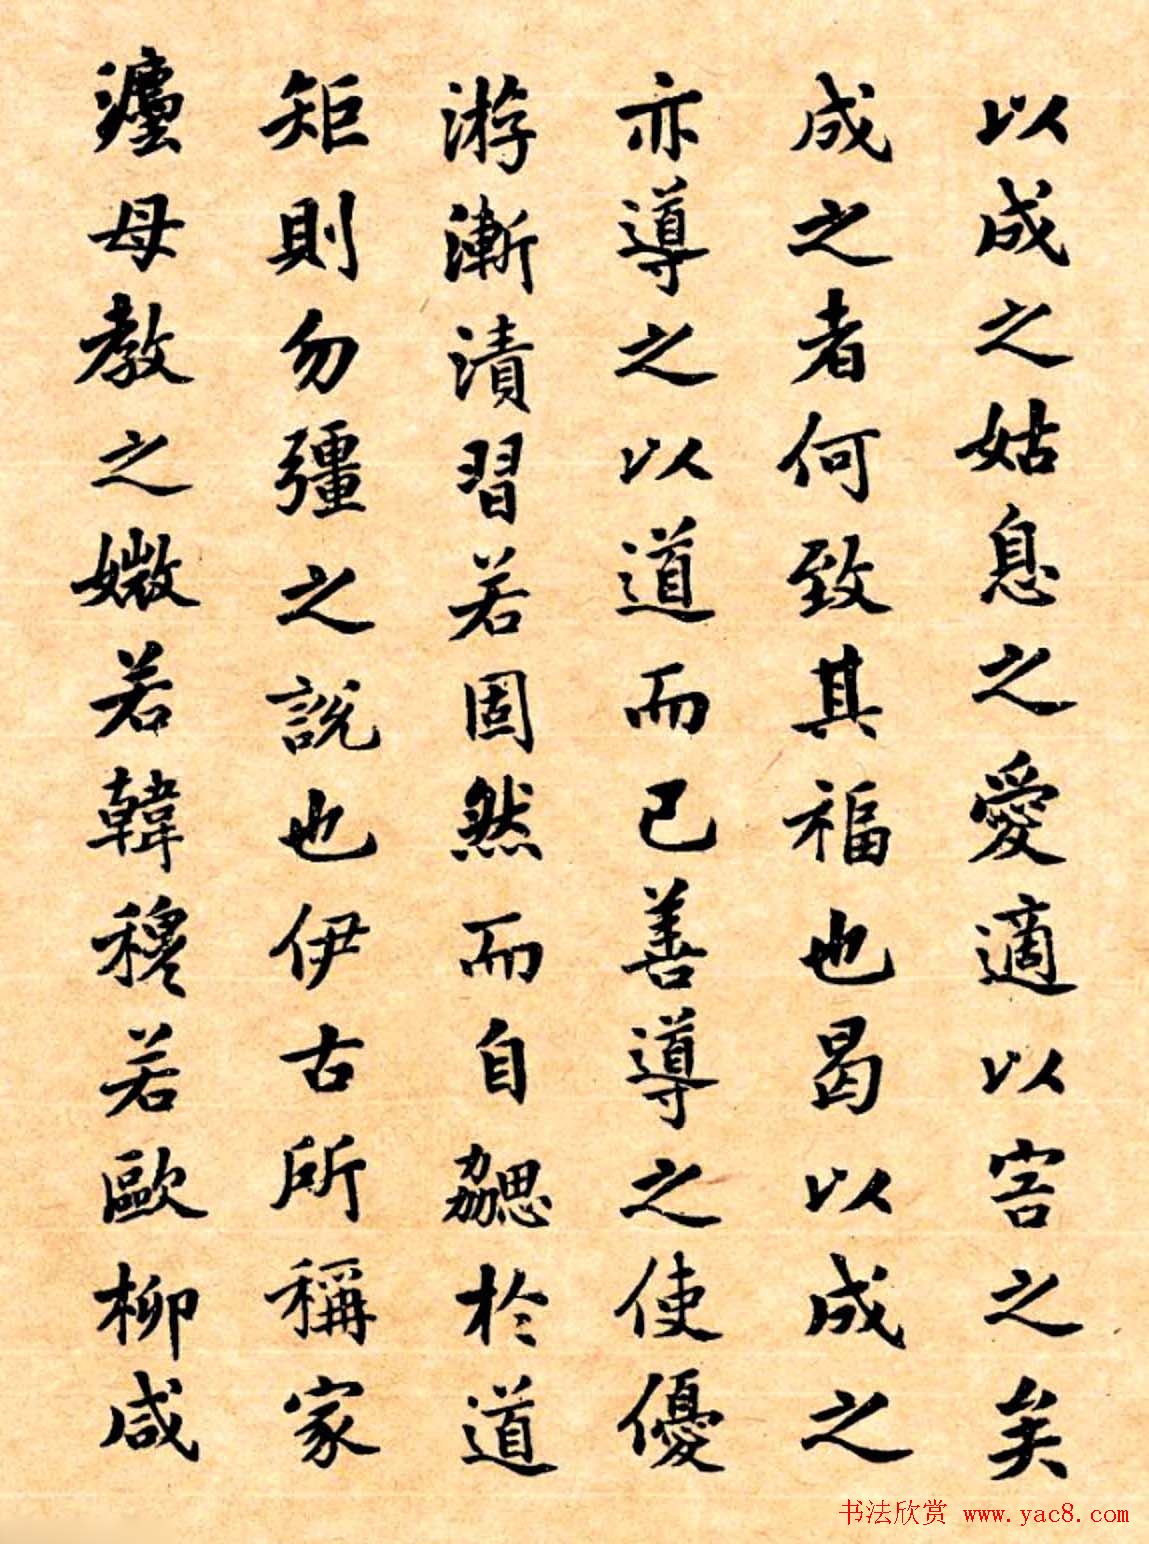 以成之姑息之愛適以害之矣
成之者何致其福也曷以成之
亦導之以道而已善導之使優
游漸漬習若固然而自勰於道
矩則勿彊之說也伊古所稱家
母教之媺若韓穆若歐柳咸
书法欣赏 www.yac8.com